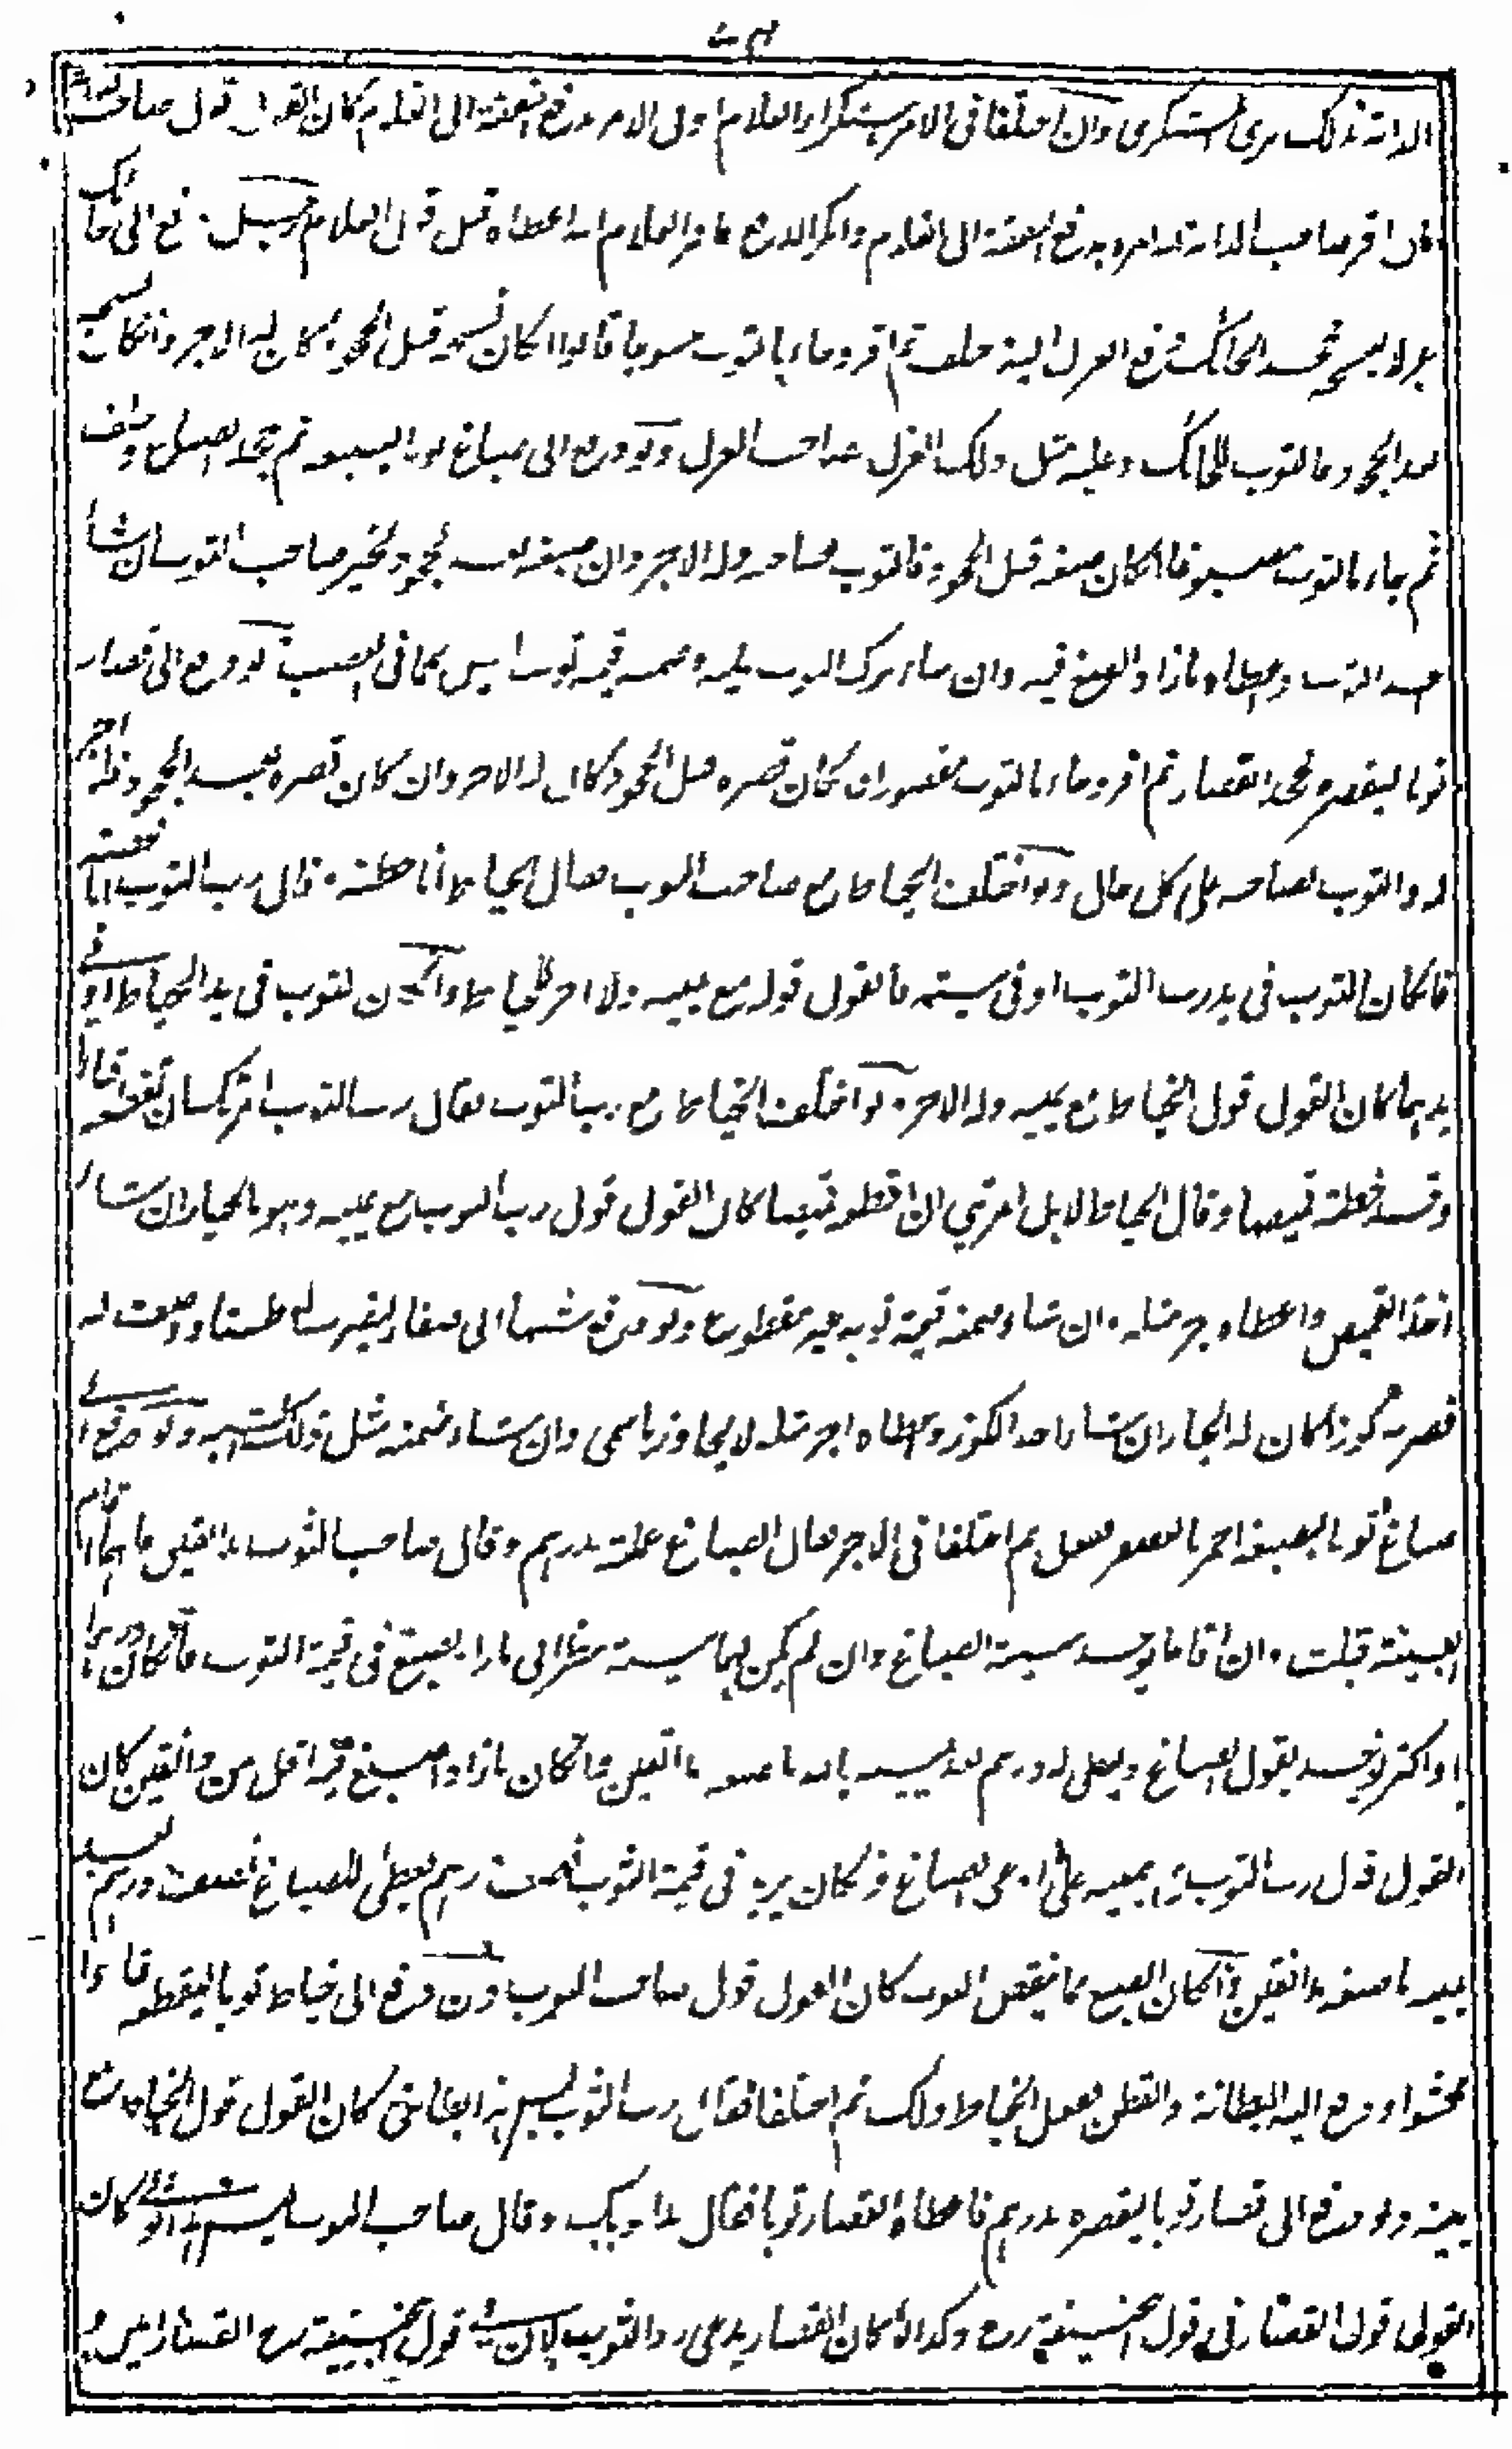 الدابة ذلك برئ المستكري وان اختلفا في الامر المستكري والغلام ولى الامر بدفع النفقة الى الغلام كان القول قول صاحب الدابة
فان اقر صاحب الدابة انه امره بدفع النفقة الى الغلام وانكر الدفع فاقر الغلام انه اعطاه قبل قول الغلام رجل دفع الى حائك
غزلا لينسجه فجحد الحائك دفع الغزل اليه حلف ثم اقر وجاء بالثوب منسوجا قالوا ان كان نسجه قبل الجحود كان له الاجر وان كان نسجه
بعد الجحود فالثوب للحائك وعليه مثل ذلك الغزل لصاحب الغزل ولو دفع الى صباغ ثوبا ليصبغه ثم جحد الصباغ وحلف
ثم جاء بالثوب مصبوغا ان كان صبغه قبل الجحود فالثوب لصاحبه وله الاجر وان صبغه بعد الجحود يخير صاحب الثوب ان شاء
اخذ الثوب واعطاه ما زاد الصبغ فيه وان شاء ترك الثوب عليه وضمنه قيمة ثوب ابيض كما في الغصب ولو دفع الى قصار
ثوبا ليقصره فجحد القصار ثم اقر وجاء بالثوب مقصورا ان كان قصره قبل الجحود كان له الاجر وان كان قصره بعد الجحود فلا اجر
له والثوب لصاحبه على كل حال ولو اختلف الخياط مع صاحب الثوب فقال الخياط انا خطته وقال رب الثوب انا خطته
فان كان الثوب في يد رب الثوب او في بيته فالقول قوله مع يمينه ولا اجر للخياط وان كان الثوب في يد الخياط او في
يدهما كان القول قول الخياط مع يمينه وله الاجر ولو اختلف الخياط مع رب الثوب فقال رب الثوب امرتك ان تقطعه قباء
وقد خطته قميصا وقال الخياط لا بل امرتني ان اقطعه قميصا كان القول قول رب الثوب مع يمينه وهو بالخيار ان شاء
اخذ القميص واعطاه اجر مثله وان شاء ضمنه قيمة ثوبه غير مقطوع ولو دفع شبها الى صفار ليضرب له طستا وصفت له
فضربه كوزا كان له الخيار ان شاء اخذ الكوز واعطاه اجر مثله لا يجاوز ما سمى وان شاء ضمنه مثل ذلك الشبه ولو دفع الى
صباغ ثوبا ليصبغه احمر بالعصفر ففعل ثم اختلفا في الاجر فقال الصباغ عملته بدرهم وقال صاحب الثوب بدانقين فايهما اقام
البينة قبلت وان اقاما يؤخذ ببينة الصباغ وان لم يكن لهما بينة ينظر الى ما زاد الصبغ في قيمة الثوب فان كان درهما
او اكثر يؤخذ بقول الصباغ ويعطى له درهم بعد يمينه بالله ما صبغه بدانقين وان كان ما زاد الصبغ فيه اقل من دانقين كان
القول قول رب الثوب مع يمينه على ما ادعى الصباغ وان كان يزيد في قيمة الثوب نصف درهم يعطى للصباغ نصف درهم بعد
يمينه ما صبغه بدانقين وان كان الصبغ مما ينقص الثوب كان القول قول صاحب الثوب ولو دفع الى خياط ثوبا ليقطعه قباء
محشوا ودفع اليه البطانة والقطن ففعل الخياط ذلك ثم اختلفا فقال رب الثوب ليس هذه بطانتي كان القول قول الخياط مع
يمينه ولو دفع الى قصار ثوبا ليقصره بدرهم فاعطاه القصار ثوبا فقال هذا ثوبك وقال صاحب الثوب ليس هذا ثوبي كان
القول قول القصار في قول ابي حنيفة رح وكذا لو كان القصار يدعي رد الثوب لان في قول ابي حنيفة رح القصار امين